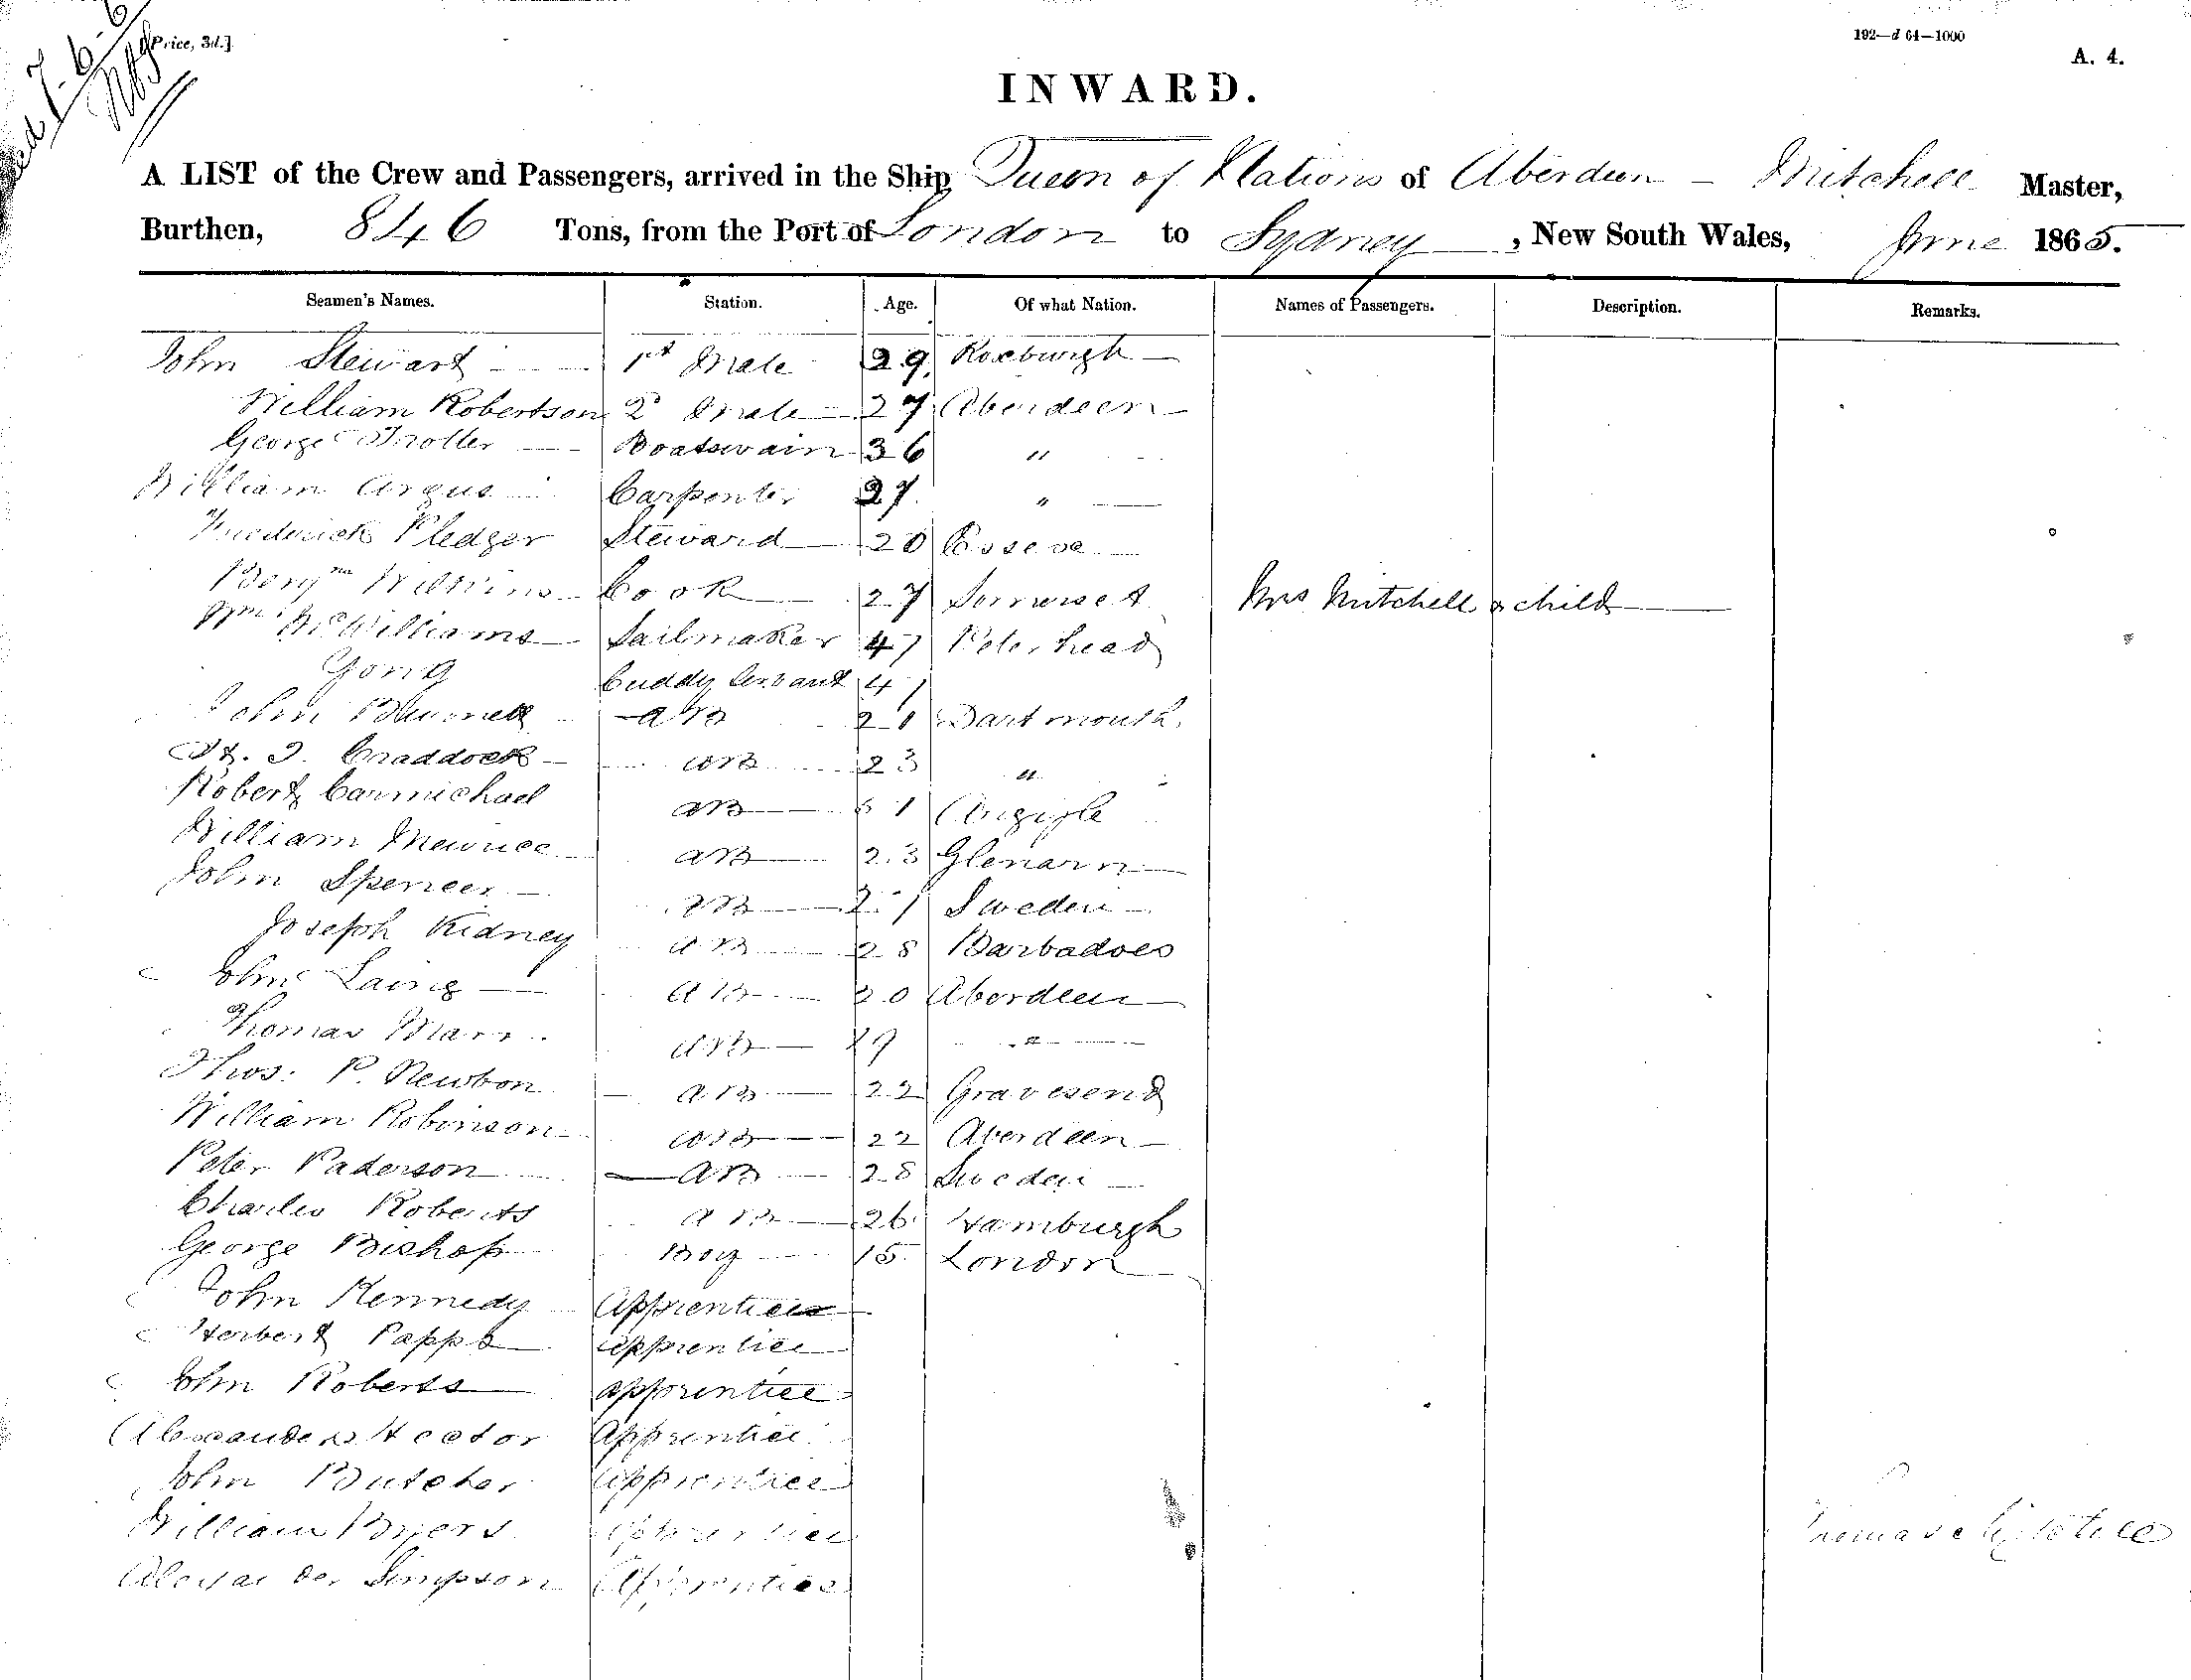 Price, 3d.]
192—d 64—1000
A. 4.
INWARD.
A LIST of the Crew and Passengers, arrived in the Ship Queen of Nations of Aberdeen — Mitchell Master,
Burthen, 846 Tons, from the Port of London to Sydney, New South Wales, June 1865.
Seamen's Names. Station. Age. Of what Nation. Names of Passengers. Description. Remarks.
John Stewart 1st Mate 29 Roxburgh
William Robertson 2d Mate 27 Aberdeen
George Trotter Boatswain 36 "
William Angus Carpenter 27 "
Frederick Pledger Steward 20 Essex
Benjmn Wilkins Cook 27 Somerset Mrs Mitchell & child
Wm McWilliams Sailmaker 47 Peterhead
Gong Cuddy Servant 41
John AB 21 Dartmouth
Craddock AB 23 "
Robert Carmichael AB Argyle
William AB 23 Glenarm
John Spencer AB 21 Sweden
Joseph Kidney AB 28 Barbadoes
John Laing AB 20 Aberdeen
Thomas Marr AB 29 "
Thos. P. Newbon AB 22 Gravesend
William Robinson AB 22 Aberdeen
Peter Paderson AB 28 Sweden
Charles Roberts AB 26 Hamburgh
George Bishop Boy 15 London
John Kennedy Apprentice
Herbert Papps apprentice
John Roberts apprentice
Alexander Hector Apprentice
John Butcher Apprentice
William Byers Apprentice
Alexander Simpson Apprentice
Thomas Mitchell